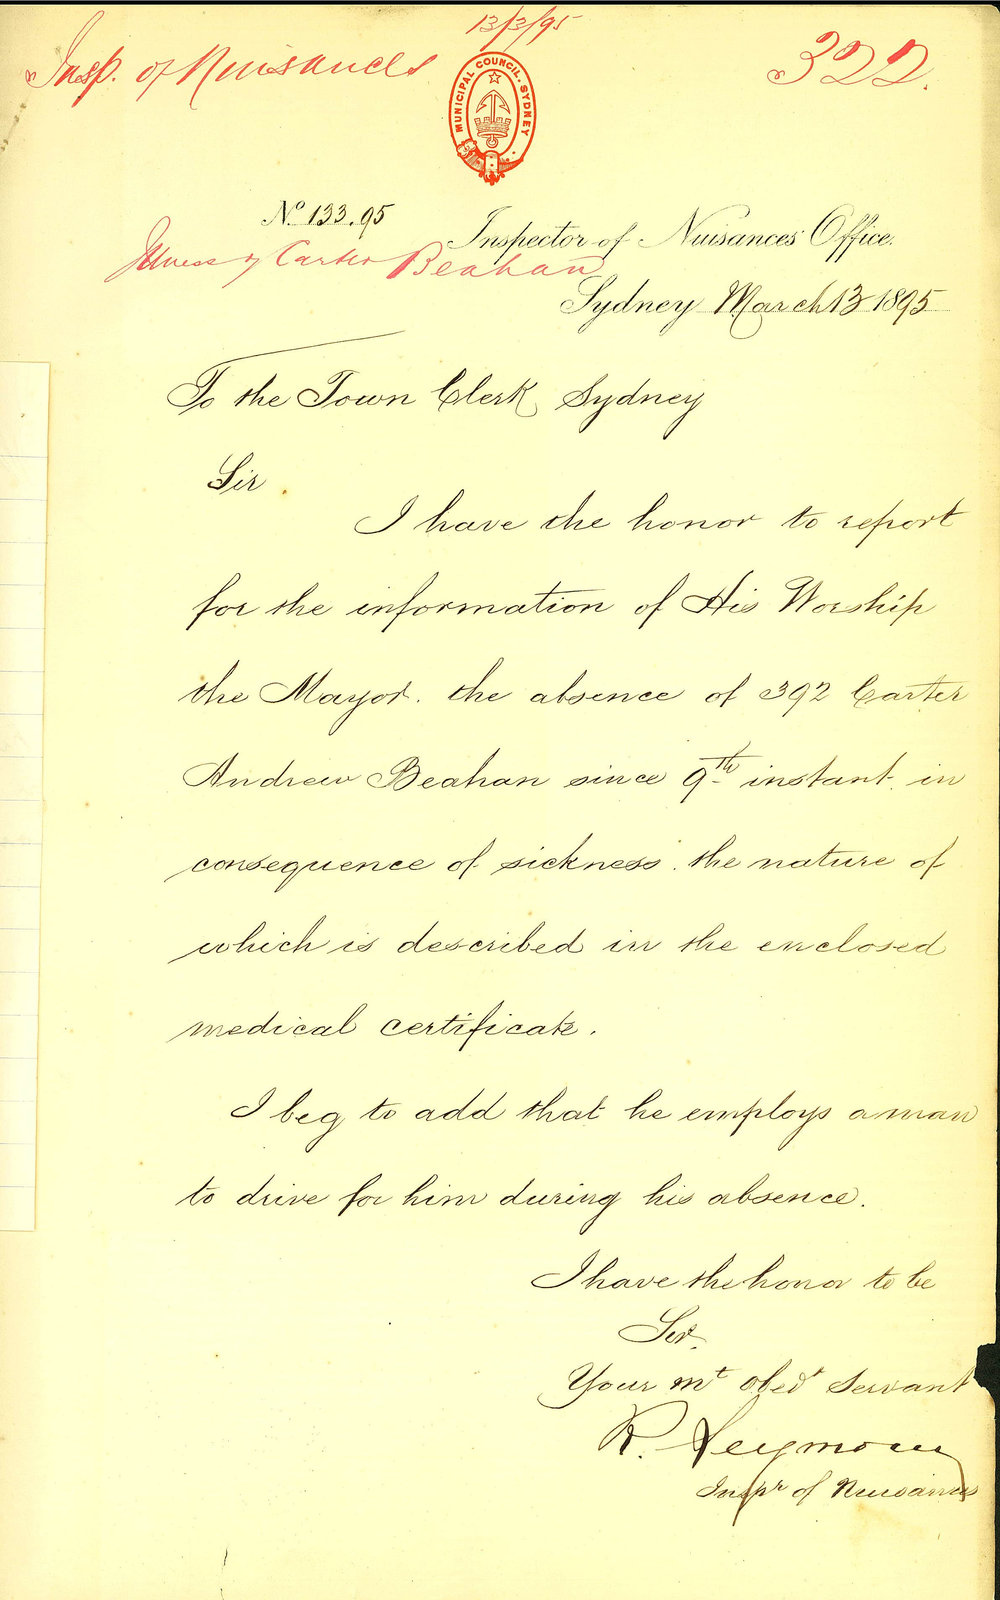 13/3/95
Insp. of Nuisances
322.
MUNICIPAL COUNCIL. SYDNEY
No 133.95
Inspector of Nuisances' Office.
Illness of Carter Beahan
Sydney March 13 1895
To the Town Clerk Sydney
Sir
I have the honor to report
for the information of His Worship
the Mayor. the absence of 392 Carter
Andrew Beahan since 9th instant. in
consequence of sickness. the nature of
which is described in the enclosed
medical certificate.
I beg to add that he employs a man
to drive for him during his absence.
I have the honor to be
Sir.
Your mt obedt Servant
R. Seymour
Inspr of Nuisances